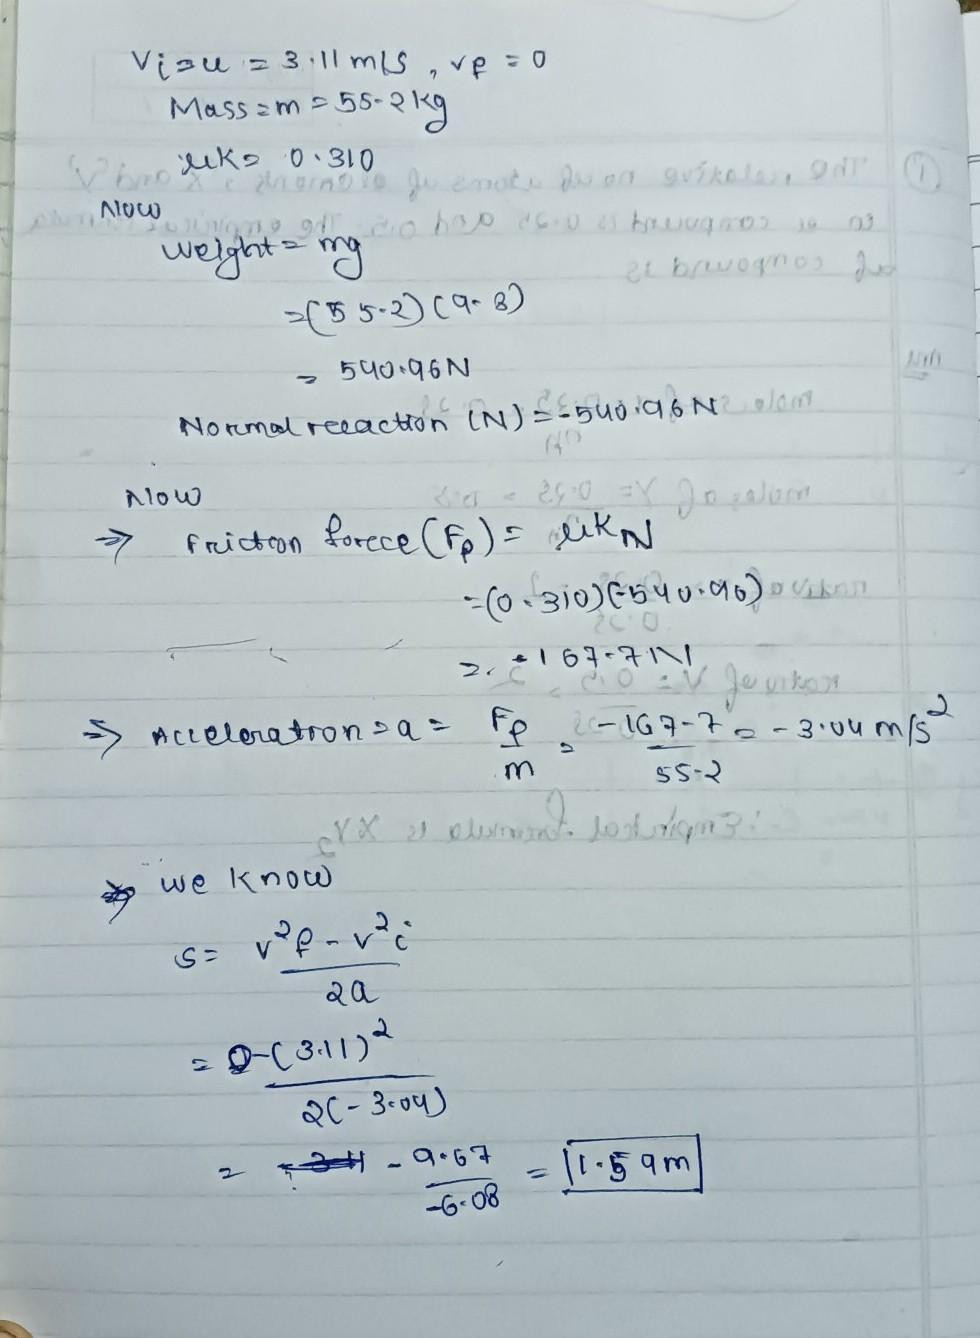 Vi=u = 3.11 m/s, vf = 0
Mass=m = 55.2kg
μk= 0.310
Now
weight = mg
=(55.2)(9.8)
= 540.96N
Normal reeaction (N) = -540.96N
Now
⇒ Friction forece (Ff) = μkN
=(0.310)(-540.96)
= -167.7N
⇒ Acceleratron = a = Ff/m = -167.7/55.2 = -3.04 m/s²
⇒ we know
s= v²f - v²i / 2a
= 0-(3.11)² / 2(-3.04)
= -9.67/-6.08 = 1.59m